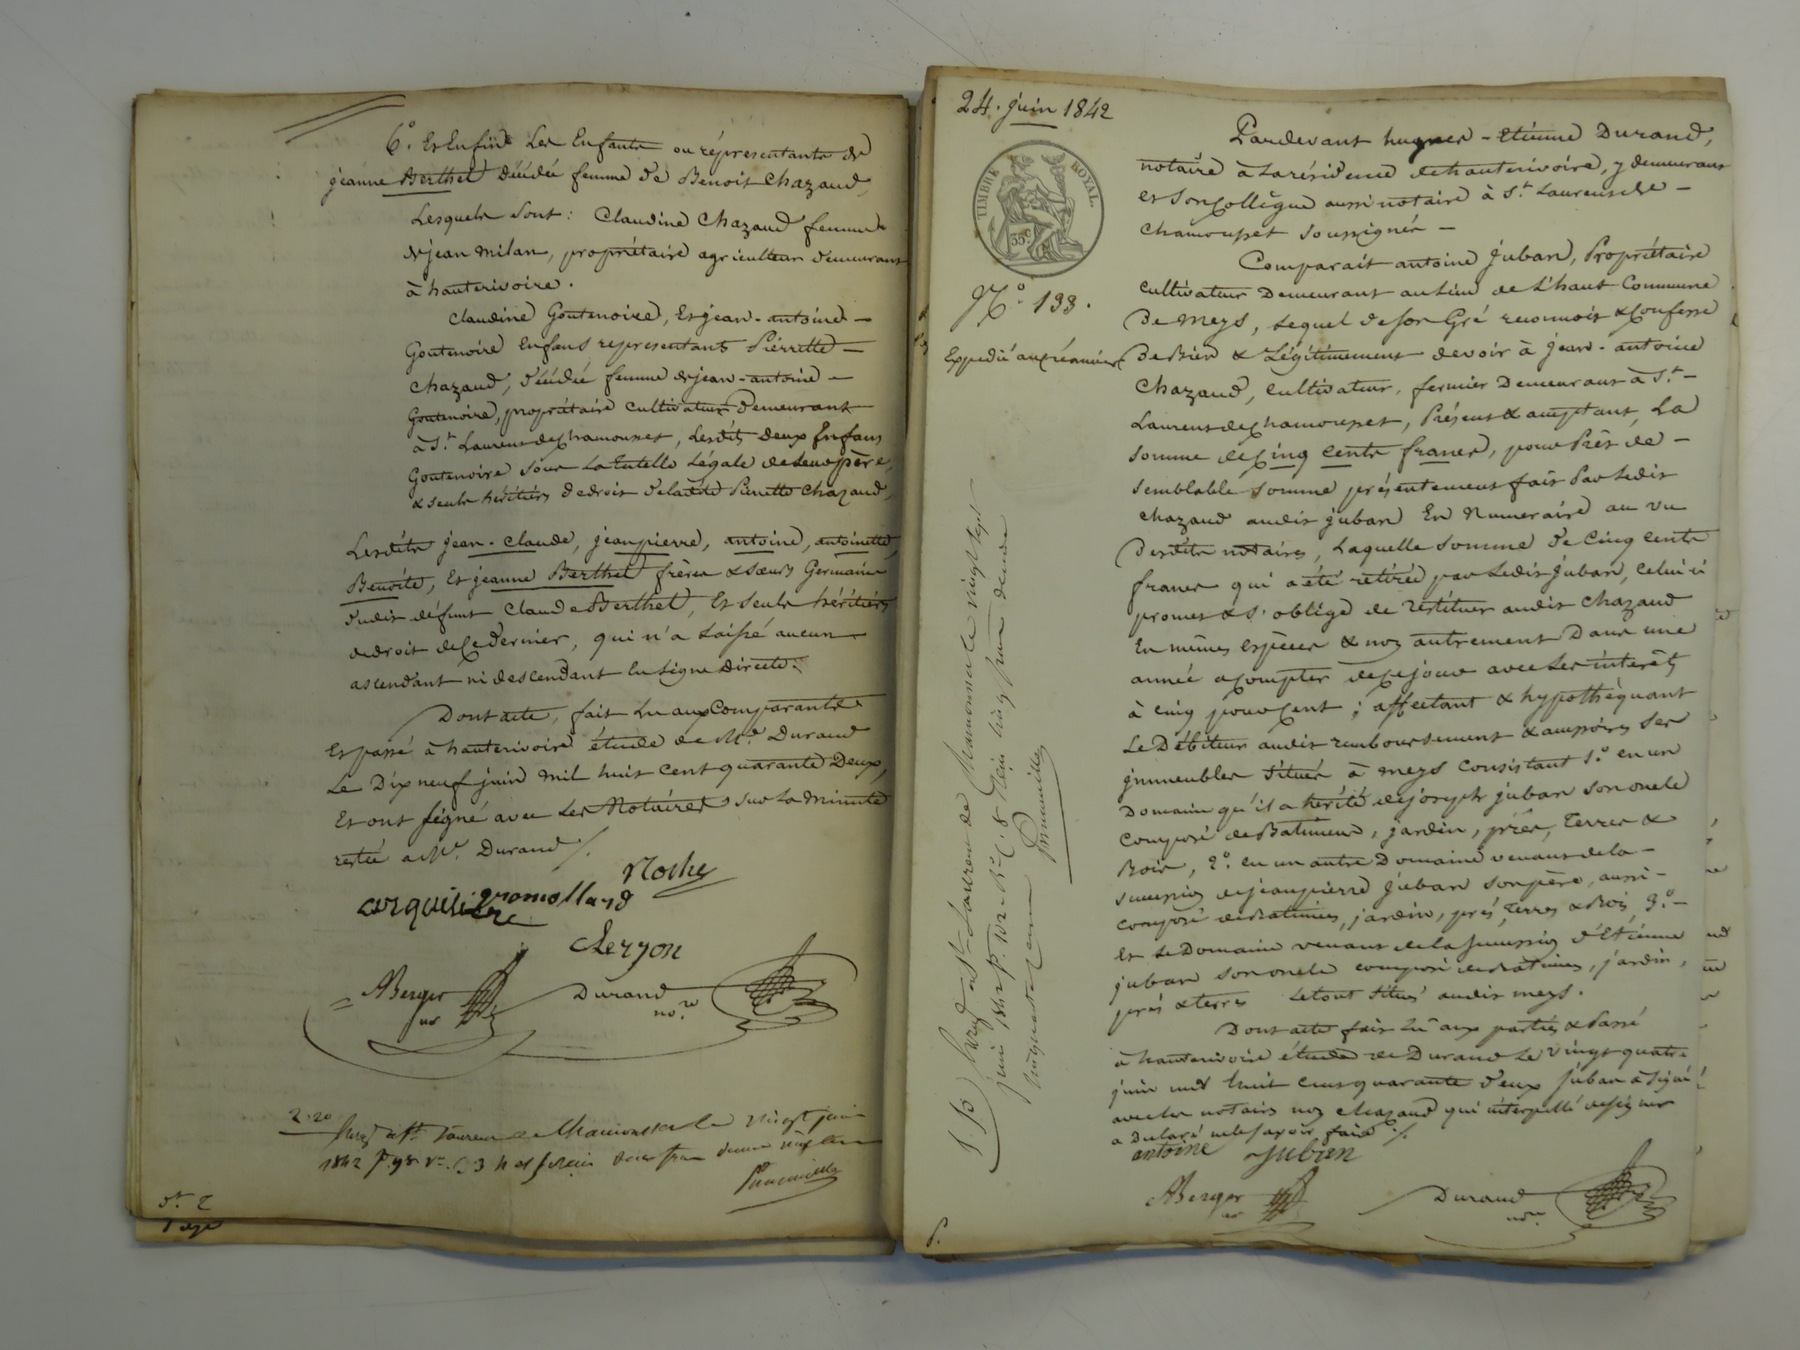 6.° Et Enfin Les Enfants ou réprésentants de
jeanne Berthet décédée femme de Benoit Chazaud,
Lesquels sont : Claudine Chazaud femme
de jean milan, propriétaire agriculteur demeurant
à hauterivoire.
Claudine Goutenoire, Et jean-antoine -
Goutenoire Enfans representants Pierrette -
Chazaud, décédée femme de jean-antoine -
Goutenoire, propriétaire cultivateur demeurant
à S.t Laurent de Chamousset, Lesdits deux Enfans
Goutenoire sous la tutelle Légale de leur père,
& seuls héritiers de droit de ladite Pierrette Chazaud,
Lesdits jean-claude, jeanpierre, antoine, antoinette,
Benoite, Et jeanne Berthet frères & sœurs Germains
dudit défunt Claude Berthet, Et seuls héritiers
de droit de ce dernier, qui n'a laissé aucun
ascendant ni descendant En Ligne directe.
Dont acte, fait Lu aux Comparants
Et passé à hauterivoire étude de M.e Durand
Le Dix neuf juin mil huit cent quarante Deux,
Et ont signé avec Les Notaires sur La Minute
restée a M.e Durand /.
Roche
arquilière gromolland
Leryon
ABerger
nre
Durand
no.re
2.20
Enreg. à St. Laurent de Chamousset le vingt juin
1842 f. 98 V.°
S.t 2
24. juin 1842
TIMBRE ROYAL
35c
N.° 133.
Expedié au créancier
Pardevant - Etienne Durand,
notaire à La résidence de hauterivoire, y demeurant
et son Collègue aussi notaire à S.t Laurent de -
Chamousset soussignés -
Comparait antoine juban, Propriétaire
cultivateur Demeurant au Lieu de L'haut Commune
De meys, Lequel de son Gré reconnoit & Confesse
De Bien & Légitimement devoir à jean-antoine
Chazaud, cultivateur, fermier Demeurant à S.t -
Laurent de Chamousset, Présent & acceptant, La
somme de Cinq cents francs, pour Prêt de -
semblable somme présentement fait Par Ledit
chazaud audit juban En Numeraire au vu
Desdits notaires, Laquelle somme de Cinq cents
francs qui a été retirée par Ledit juban, celui ci
promet & s'oblige de restituer audit Chazaud
En mêmes espèces & non autrement Dans une
année a Compter de ce jour avec Les interêts
à cinq pour Cent ; affectant & hypothéquant
Le Débiteur audit remboursement & accessoires ses
immeubles situés à meys consistant 1.° en un
Domaine qu'il a hérité de joseph juban son oncle
Composé de Batiments, jardin, près, Terres &
Bois, 2.° en un autre Domaine venant de la -
succession de jeanpierre juban son père, aussi -
composé de batimens, jardin, prés, Terres & Bois, 3.° -
Et Le Domaine venant de la succession d'Etienne
juban son oncle composé de Batimens, jardin,
prés & terres Le tout situé audit meys.
Dont acte fait Lu aux parties & Passé
à hauterivoire étude de Durand Le vingt quatre
juin mil huit cent quarante deux juban a signé
avec les notaires non chazaud qui interpellé de signer
a Déclaré ne le savoir faire /.
antoine Juban
ABerger
nre
Durand
no.re
Enreg. à St. Laurent de Chamousset le vingt sept
juin 1842 f. 102